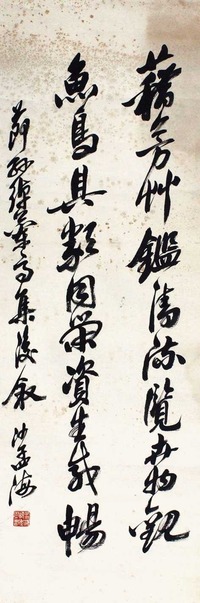 藉芳艸鑑清流覽卉物觀
魚鳥具類同榮資生咸暢
節孫綽蘭亭集後敘 沙孟海